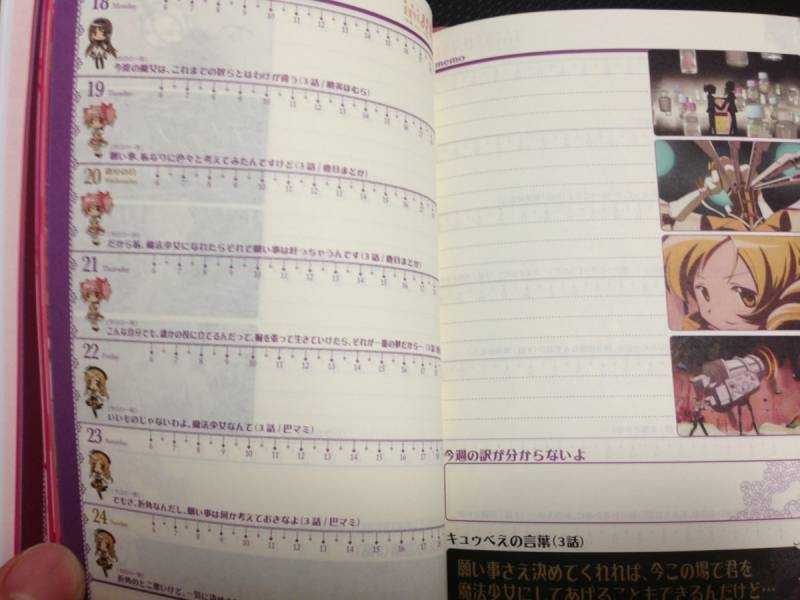 18 Monday
6 7 8 9 10 11 12 13 14 15 16 17
今度の魔女は、これまでの奴らとはわけが違う(3話/暁美ほむら)
19 Tuesday
6 7 8 9 10 11 12 13 14 15 16 17
願い事、私なりに色々と考えてみたんですけど(3話/鹿目まどか)
20 春分の日
Wednesday
6 7 8 9 10 11 12 13 14 15 16 17
だから私、魔法少女になれたらそれで願い事は叶っちゃうんです(3話/鹿目まどか)
21 Thursday
6 7 8 9 10 11 12 13 14 15 16 17
こんな自分でも、誰かの役に立てるんだって、胸を張って生きていけたら、それが一番の夢だから…(3話
22 Friday
6 7 8 9 10 11 12 13 14 15 16 17
いいものじゃないわよ、魔法少女なんて(3話/巴マミ)
23 Saturday
6 7 8 9 10 11 12 13 14 15 16 17 18
でもさ、折角なんだし、願い事は何か考えておきなよ(3話/巴マミ)
24 Sunday
6 7 8 9 10 11 12 13 14 15 16 17 18
折角のとこ悪いけど、一気に決め
memo
今週の訳が分からないよ
キュゥべえの言葉(3話)
願い事さえ決めてくれれば、今この場で君を
魔法少女にしてあげることもできるんだけど…